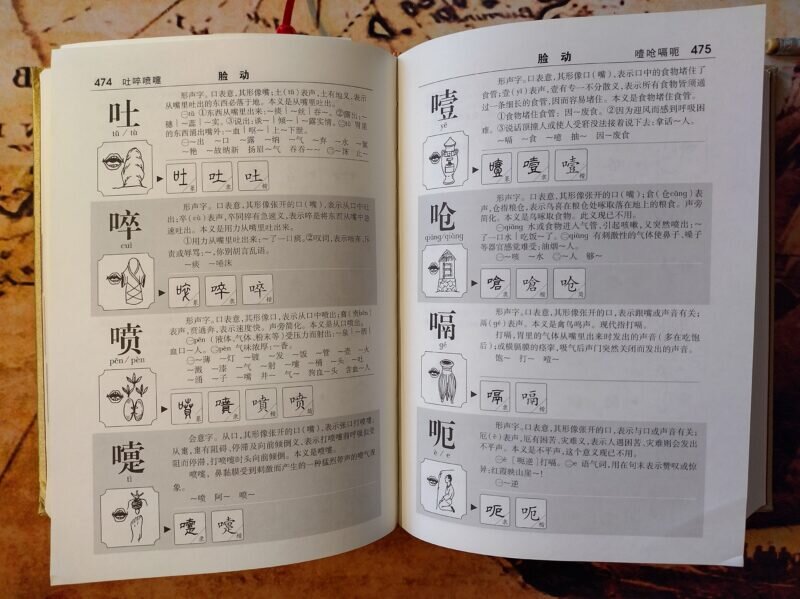 474 吐啐喷嚏
脸动
吐
tǔ / tù
形声字。口表意,其形像嘴;土(tǔ)表声,土有地义,表示
从嘴里吐出的东西必落于地。本义是从嘴里吐出。
㊀tǔ ①东西从嘴里出来:~痰｜~丝｜吞~。②露出:~
穗｜~蕊｜~实。③说出:谈~｜倾~｜~露实情。㊁tù 胃里
的东西涌出嘴外:~血｜呕~｜上~下泻。
㊀~出 ~口 ~露 ~纳 ~气 ~弃 ~水 ~絮
~艳 ~故纳新 扬眉~气 吞吞~~ ㊁~沫 止~
吐 吐 吐
啐
cuì
形声字。口表意,其形像张开的口(嘴),表示从口中吐
出;卒(zú)表声,卒同猝有急速义,表示啐是将东西从嘴中急
速吐出。本义是用力从嘴里吐出来。
①用力从嘴里吐出来:~了一口痰。②叹词,表示唾弃、斥
责或辱骂:~,你别胡言乱语。
~痰 ~唾沫
啐 啐 啐
喷
pēn / pèn
形声字。口表意,其形像口,表示从口中喷出;賁(贲bēn)
表声,贲通奔,表示速度快。声旁简化。本义是从口喷出。
㊀pēn (液体、气体、粉末等)受压力而射出:~泉｜~洒｜
血口~人。㊁pèn 气味浓厚:~香。
㊀~薄 ~灯 ~镀 ~发 ~饭 ~管 ~壶 ~火
~溅 ~漆 ~气 ~射 ~嚏 ~桶 ~头 ~吐
~涌 ~子 ~嘴 井~ 气~ 狗血~头 含血~人
噴 噴 噴 喷
嚏
tì
会意字。从口,其形像张开的口(嘴),表示张口打喷嚏;
从疐,疐有阻碍、停滞及向前倾倒义,表示打喷嚏前呼吸似受
阻而停滞,打喷嚏时头向前倾倒。本义是喷嚏。
喷嚏,鼻黏膜受到刺激而产生的一种猛烈带声的喷气现
象。
~喷 阿~ 喷~
嚏 嚏
脸动
噎呛嗝呃 475
噎
yē
形声字。口表意,其形像口(嘴),表示口中的食物堵住了
食管;壹(yī)表声,壹有专一不分散义,表示食物皆须通
过一条细长的食管,因而容易堵住。本义是食物堵住食管。
①食物堵住食管:因~废食。②因为迎风而感到呼吸困
难。③说话顶撞人或使人受窘没法接着说下去:拿话~人。
~嗝 ~食 ~噎 抽~ 因~废食
噎 噎 噎
呛
qiāng/qiàng
形声字。口表意,其形像张开的口(嘴);倉(仓cāng)表
声,仓指粮仓,表示鸟喜在粮仓处啄取落在地上的粮食。声旁
简化。本义是鸟啄取食物。此义现已不用。
㊀qiāng 水或食物进入气管,引起咳嗽,又突然喷出:~
了一口水｜吃饭~了。㊁qiàng 有刺激性的气体使鼻子、嗓子
等器官感觉难受:油烟~人。
㊀~咳 ~水 ㊁~人 够~
嗆 嗆 呛
嗝
gé
形声字。口表意,其形像张开的口,表示跟嘴或声音有关;
鬲(gé)表声。本义是禽鸟鸣声。现代指打嗝。
打嗝,胃里的气体从嘴里出来时发出的声音(多在吃饱
后);或横膈膜的痉挛,吸气后声门突然关闭而发出的声音。
饱~ 打~ 噎~
嗝 嗝
呃
è / e
形声字。口表意,其形像张开的口,表示与口或声音有关;
厄(è)表声,厄有困苦、灾难义,表示人遇困苦、灾难则会发出
不平声。本义是不平声,这个意义现已不用。
㊀è [呃逆]打嗝。㊁e 语气词,用在句末表示赞叹或惊
异:红霞映山崖~!
㊀~逆
呃 呃